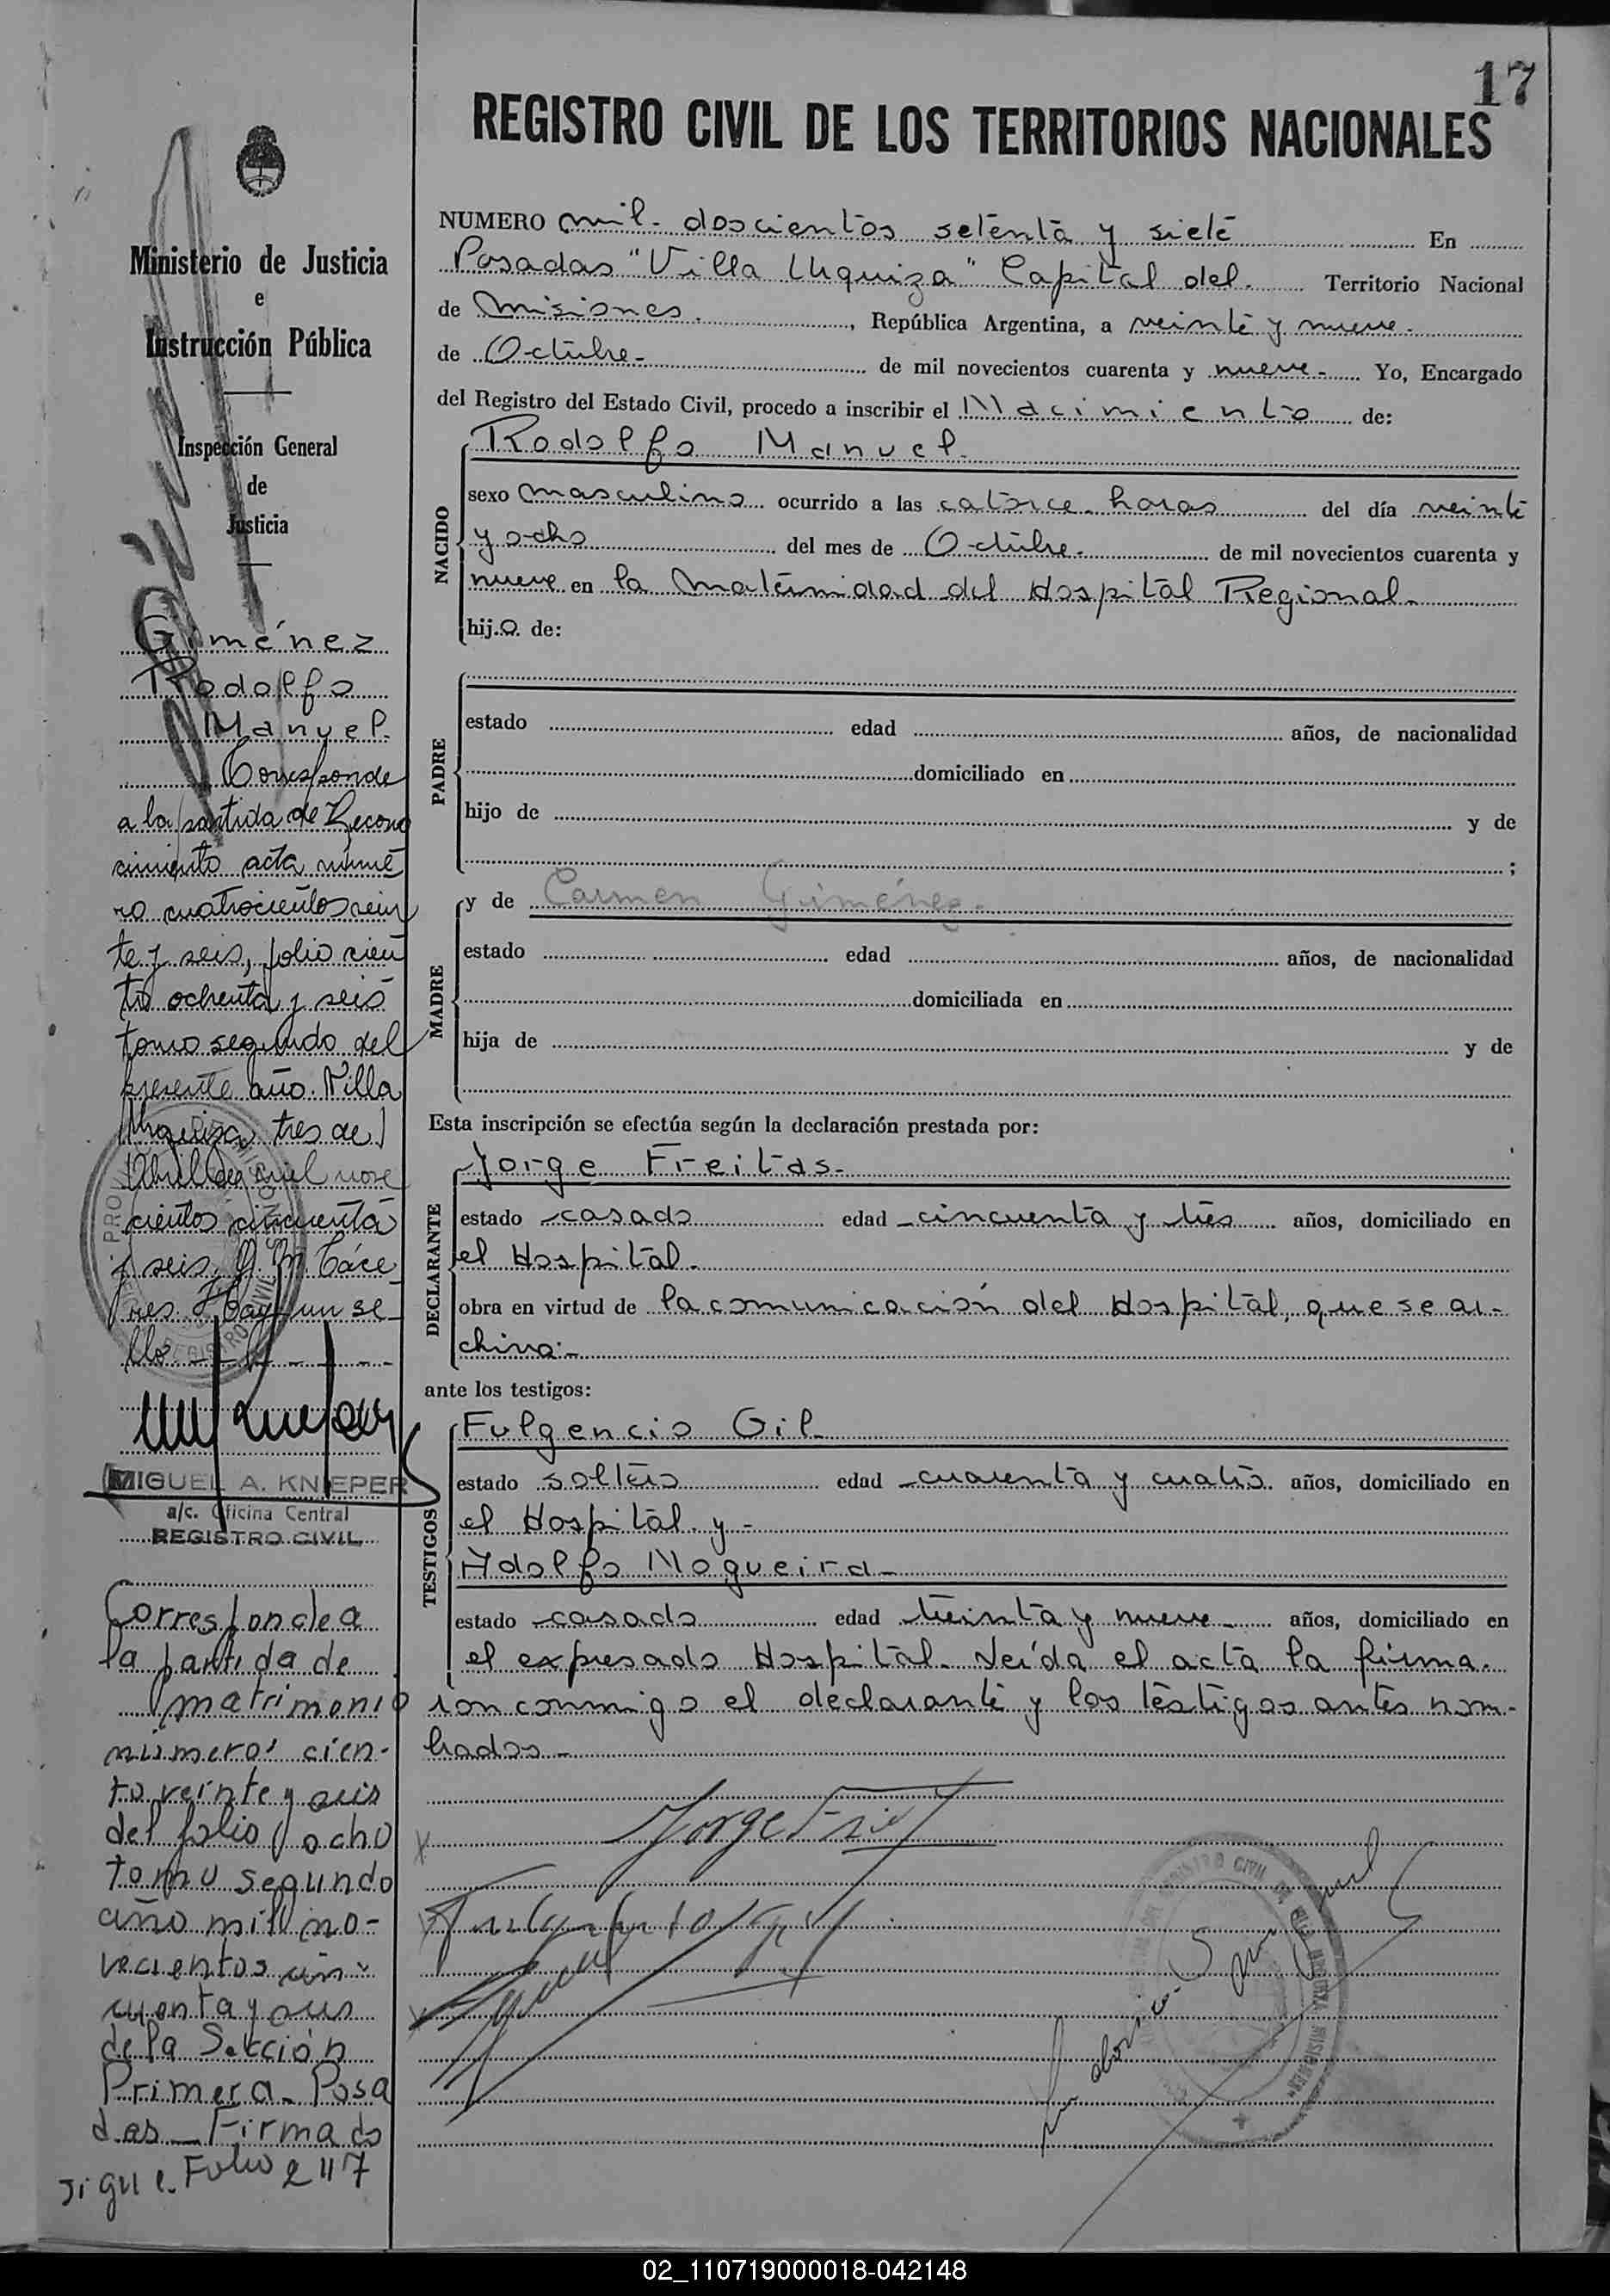 17
REGISTRO CIVIL DE LOS TERRITORIOS NACIONALES
Ministerio de Justicia
e
Instrucción Pública
Inspección General
de
Justicia
Giménez
Rodolfo
Manuel.
Corresponde
a la partida de Recono
cimiento acta núme
ro cuatrocientos vein
te y seis, folio cien
to ochenta y seis
tomo segundo del
presente año. Villa
Urquiza, tres de
Abril de mil nove
cientos cincuenta
y seis. G. M. Cáce
res. Hay un se
llo. - - - - -
MIGUEL A. KNIEPER
a/c. Oficina Central
REGISTRO CIVIL
Corresponde a
la partida de
matrimonio
número: cien-
to veinte y seis
del folio ocho
tomo segundo
año mil no-
vecientos cin-
cuenta y seis
de la Sección
Primera - Posa
das - Firmado
sigue Folio 2117
NUMERO mil. doscientos setenta y siete En
Posadas "Villa Urquiza" Capital del. Territorio Nacional
de Misiones. , República Argentina, a veinte y nueve.
de Octubre- de mil novecientos cuarenta y nueve- Yo, Encargado
del Registro del Estado Civil, procedo a inscribir el Nacimiento de:
NACIDO
Rodolfo Manuel.
sexo masculino ocurrido a las catorce horas del día veinte
y ocho del mes de Octubre. de mil novecientos cuarenta y
nueve en la Maternidad del Hospital Regional.
hij.o. de:
PADRE
estado edad años, de nacionalidad
domiciliado en
hijo de y de
;
MADRE
y de Carmen Giménez.
estado edad años, de nacionalidad
domiciliada en
hija de y de
Esta inscripción se efectúa según la declaración prestada por:
DECLARANTE
Jorge Freitas.
estado casado edad cincuenta y tres años, domiciliado en
el Hospital.
obra en virtud de la comunicación del Hospital, que se ar-
chiva.-
ante los testigos:
TESTIGOS
Fulgencio Gil.
estado soltero edad cuarenta y cuatro años, domiciliado en
el Hospital. y -
Adolfo Nogueira-
estado casado edad treinta y nueve años, domiciliado en
el expresado Hospital. Leída el acta la firma.
ron conmigo el declarante y los testigos antes nom-
brados-
02_110719000018-042148